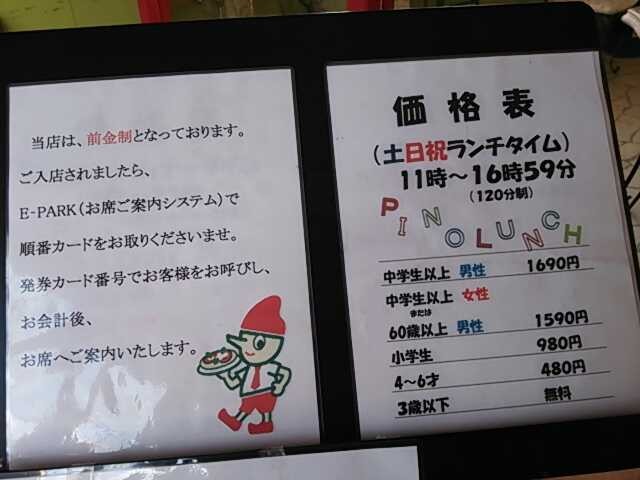 当店は、前金制となっております。
ご入店されましたら、
E-PARK(お席ご案内システム)で
順番カードをお取りくださいませ。
発券カード番号でお客様をお呼びし、
お会計後、
お席へご案内いたします。
価格表
(土日祝ランチタイム)
11時~16時59分
(120分制)
PINOLUNCH
中学生以上 男性 1690円
中学生以上 女性
または
60歳以上 男性 1590円
小学生 980円
4~6才 480円
3歳以下 無料